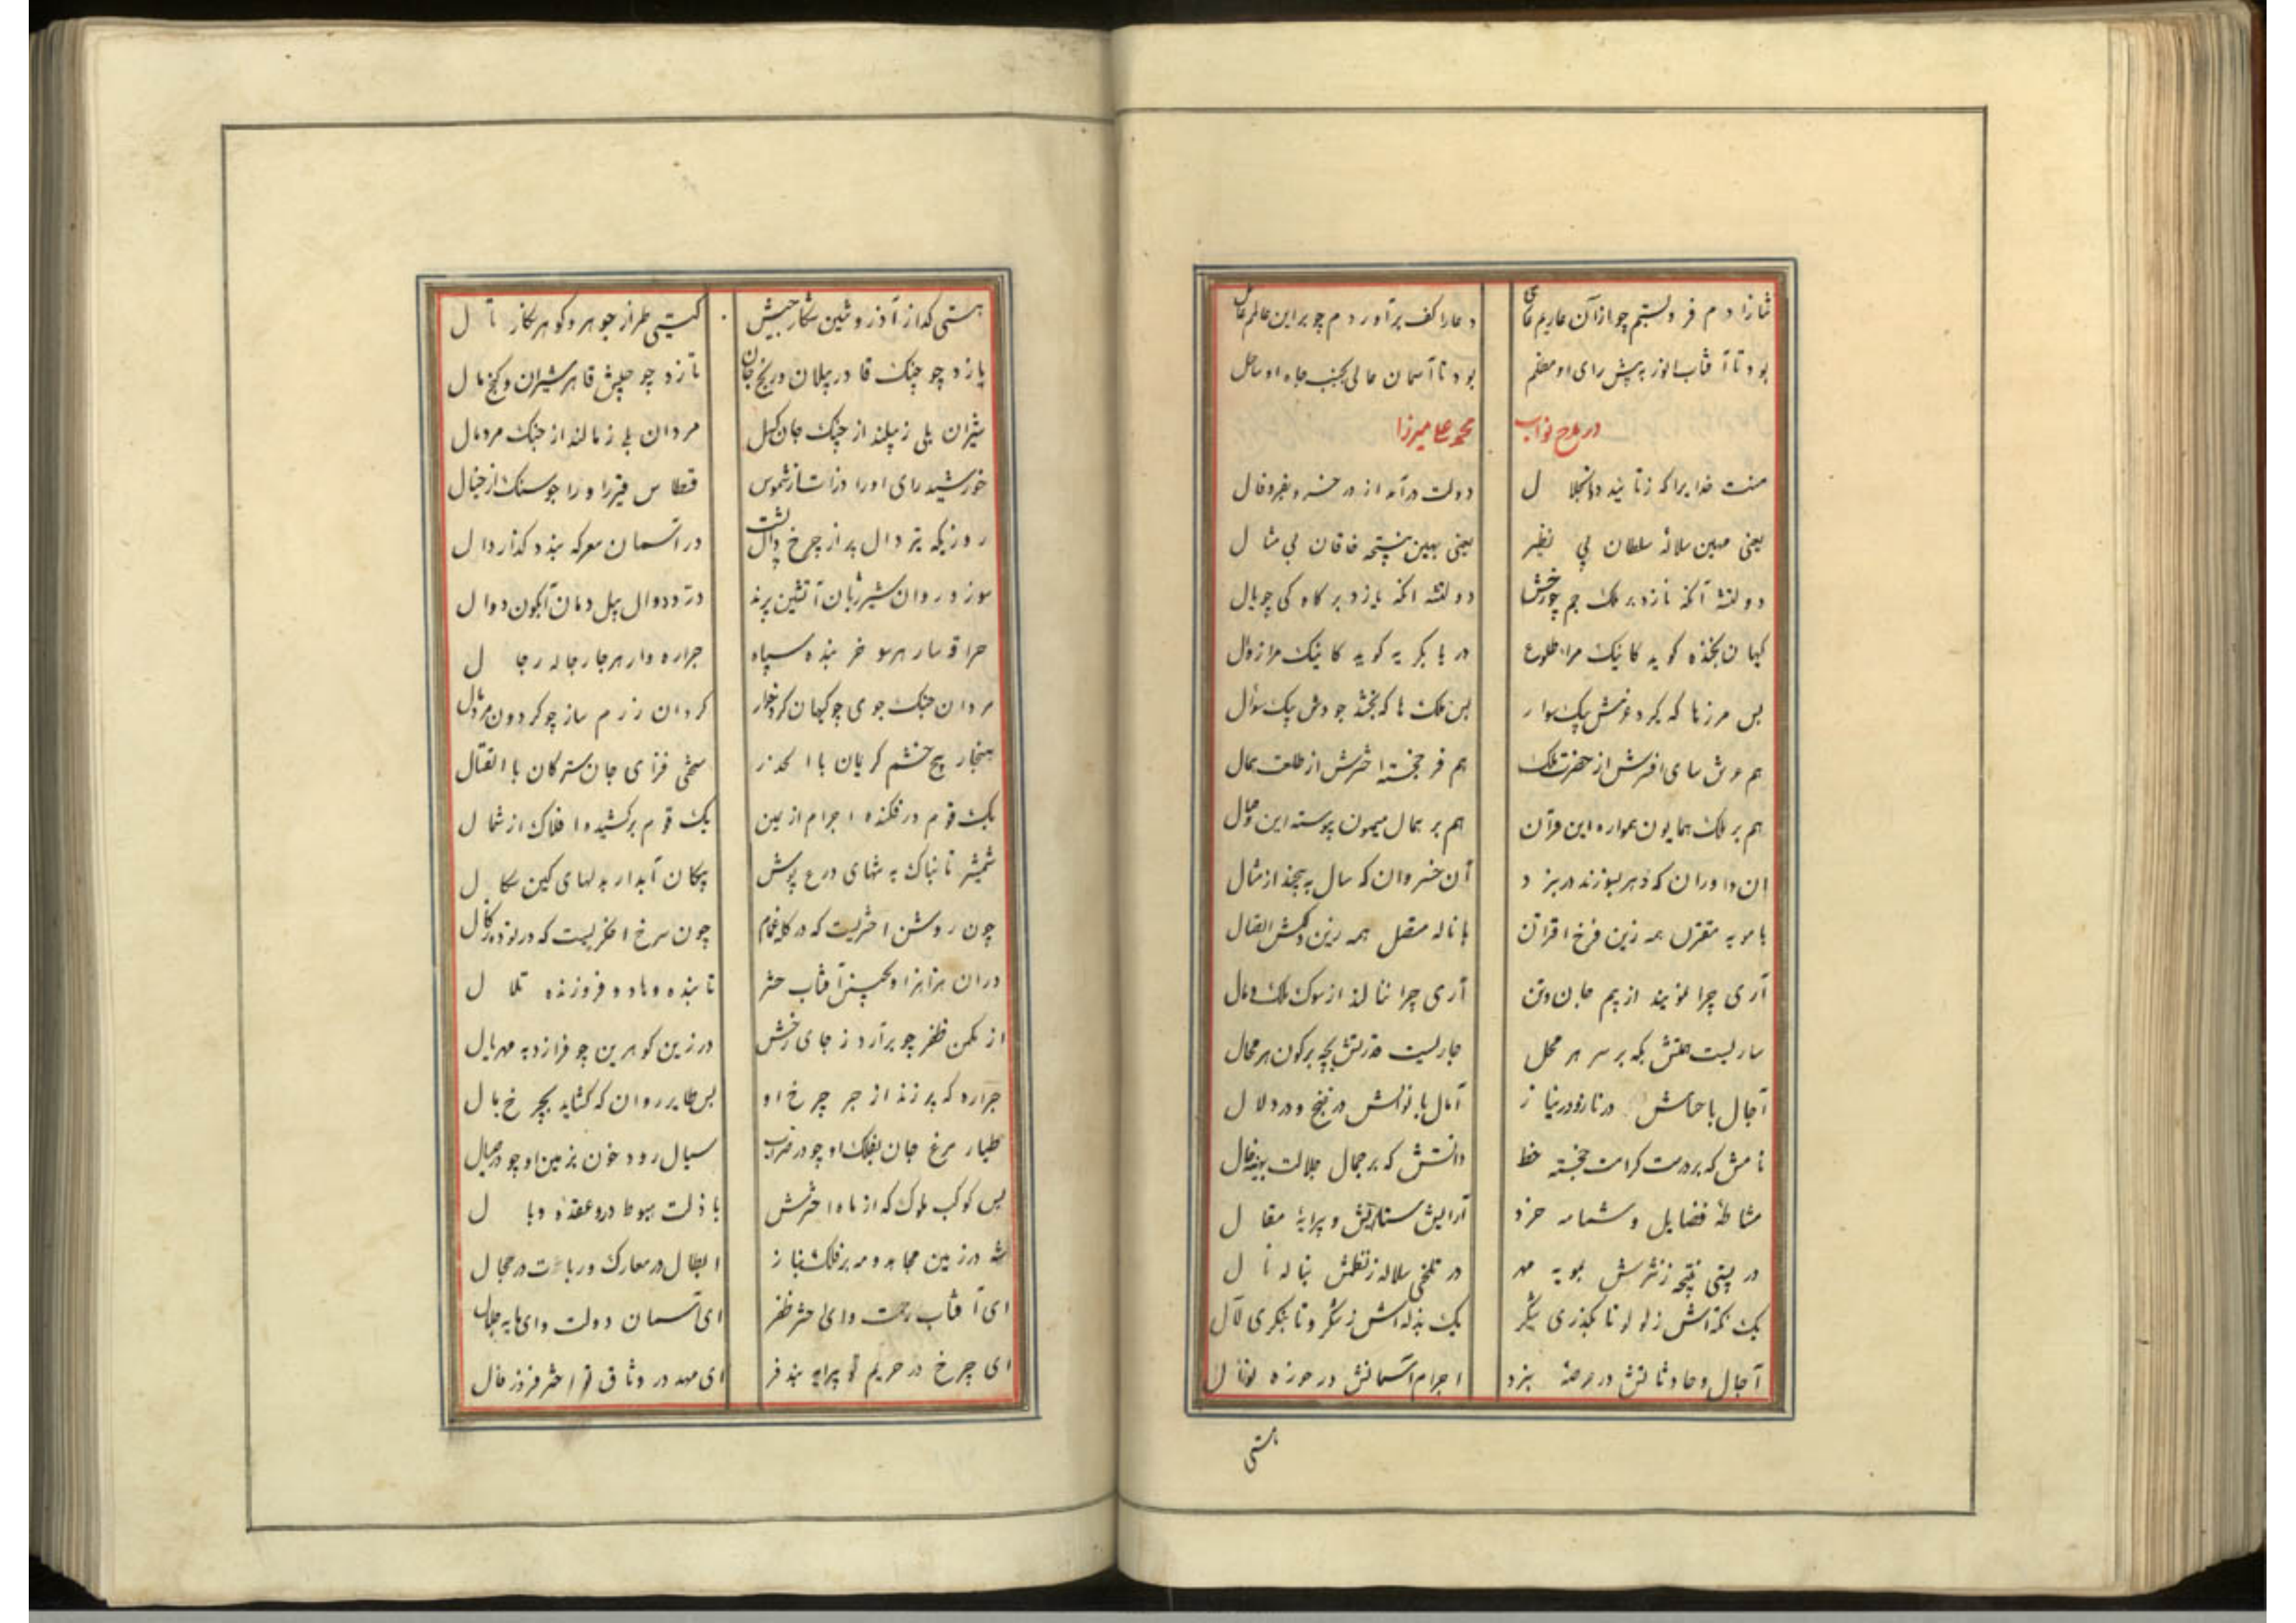 ثنا را دم فرو بستم چو از آن عاریم
دعا را کف برآوردم چو بر این عالم
بود تا آفتاب انور به پیش رای او مظلم
بود تا آسمان عالی بجنب جاه او سافل
در مدح نواب
محمد علی میرزا
منت خدایرا که ز تایید ذوالجلال
دولت درآمد از در خسرو بفر و فال
یعنی مهین سلاله سلطان بی نظیر
یعنی بهین نتیجه خاقان بی مثال
دولتشه آنکه نازد بر ملک جم چو رخش
دولتشه آنکه یازد بر گاه کی چو یال
کیهان بخنده گوید کاینک مرا طلوع
دریا بگریه گوید کاینک مرا زوال
بس مرزها که گیرد عزمش بیک سوار
بس ملک ها که بخشد جودش بیک سؤال
هم عرش سای افسرش از حضرت ملک
هم فرخجسته اخترش از طلعت همال
هم بر ملک همایون همواره این قران
هم بر همال میمون پیوسته این وصال
آن داوران که دهر بسوزند در نبرد
آن خسروان که سال به بخشد از مثال
با مویه مقترن همه زین فرخ اقتران
با ناله متصل همه زین دلکش اتصال
آری چرا نمویند از بیم جان و تن
آری چرا ننالند از سوک ملک و مال
ساریست حکمش بکه بر سر هر محل
جاریست قدرتش بچه بر کون هر محال
آجال با حسامش در ناز و در نیاز
آمال با نوالش در غنج و در دلال
نامش که بر درست کرامت خجسته خط
ذاتش که بر جمال جلالت بهینه خال
مشاطهٔ فضایل و شمامه خرد
آرایش ستایش و پیرایهٔ مقال
در پستی نتیجه ز نثرش بمویه مهر
در تلخی سلاله ز نظمش بناله نال
یک نکته اش ز لولو تا بگذری شکر
یک بذله اش ز شکر و تا بنگری لآل
آجال و حادثاتش در عرصهٔ نبرد
اجرام آسمانش در حوزه نوال
هستی
هستی گداز آذر و تنین شکار جیش
گیتی طراز جوهر و گوهر نگار نال
یازد چو چنگ قادر پیلان و رنج جان
تازد چو جیش قاهر شیران و گنج مال
شیران یلی ز پیلند از چنگ جان گسل
مردان بلی ز مالند از جنگ مرد مال
خورشید رای او را ذرات از شموس
قسطاس قهر او را جوسنگ از جبال
روزیکه تیر دال پر از چرخ دال پشت
در آسمان معرکه بندد گذار دال
سوزد روان شیر ژیان آتشین پرند
درد دوال پیل دمان آبگون دوال
حراقه سار هر سو خرنبده سپاه
جراره وار هر جا رجاله رجال
مردان جنگ جوی چو کیهان کردخوار
گردان رزم ساز چو گردون مردمال
هنجار پیچ خشم گرایان با الحذر
سختی فزای جان سترگان با القتال
یک قوم در فکنده اجرام از یمین
یک قوم برکشیده افلاک از شمال
شمشیر تابناک به تنهای درع پوش
پیکان آبدار بدلهای کین سگال
چون روشن اختریست که در کله غمام
چون سرخ اخگریست که در توده زگال
در آن هزاهز او بحسین آفتاب حشر
تابنده وهاد و فروزنده تلال
از مکمن ظفر چو برآرد ز جای رخش
در زین گوهرین چو فرازد به مهر یال
جراره که پر زند از جر چرخ او
بس طایر روان که گشاید بچرخ بال
طیار مرغ جان بفلک او چو در ضراب
سیال رود خون بزمین او چو در صیال
بس کوکب ملوک که از ماه اخترش
با ذلت هبوط در و عقده وبال
شه در زمین مجاهد و مه بر فلک بناز
ابطال در معارک و ربات در حجال
ای آفتاب رحمت و ای اختر ظفر
ای آسمان دولت و ای مایه جلال
ای چرخ در حریم تو پیرایه بند فر
ای مهر در وثاق تو اختر فروز فال